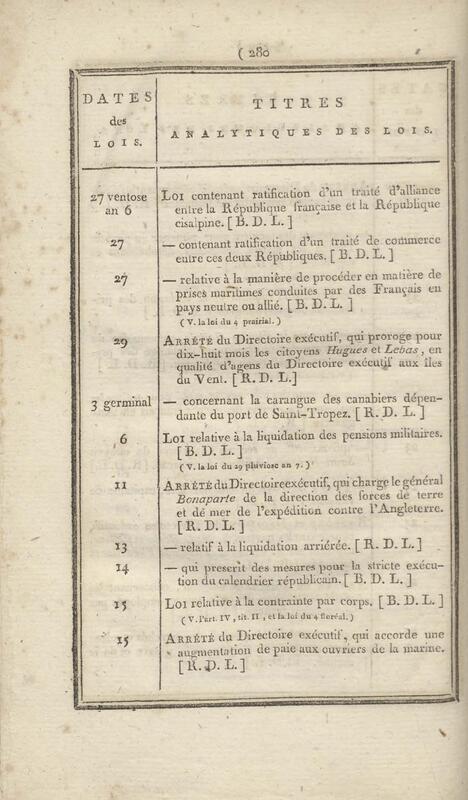 ( 280
DATES
des
LOIS.
TITRES
ANALYTIQUES DES LOIS.
27 ventose
an 6
LOI contenant ratification d'un traité d'alliance
entre la République française et la République
cisalpine. [ B. D. L. ]
27
— contenant ratification d'un traité de commerce
entre ces deux Républiques. [ B. D. L. ]
27
— relative à la manière de procéder en matière de
prises maritimes conduites par des Français en
pays neutre ou allié. [ B. D. L. ]
( V. la loi du 4 prairial. )
29
ARRÊTÉ du Directoire exécutif, qui proroge pour
dix-huit mois les citoyens Hugues et Lebas, en
qualité d'agens du Directoire exécutif aux îles
du Vent. [ R. D. L.]
3 germinal
— concernant la carangue des canabiers dépen-
dante du port de Saint-Tropez. [ R. D. L. ]
6
LOI relative à la liquidation des pensions militaires.
[ B. D. L. ]
( V. la loi du 29 pluviose an 7. )
11
ARRÊTÉ du Directoire exécutif, qui charge le général
Bonaparte de la direction des forces de terre
et de mer de l'expédition contre l'Angleterre.
[ R. D. L. ]
13
— relatif à la liquidation arriérée. [ R. D. L. ]
14
— qui prescrit des mesures pour la stricte exécu-
tion du calendrier républicain. [ B. D. L. ]
15
LOI relative à la contrainte par corps. [ B. D. L. ]
( V. l'art. IV, tit. II, et la loi du 4 floréal. )
15
ARRÊTÉ du Directoire exécutif, qui accorde une
augmentation de paie aux ouvriers de la marine.
[ R. D. L. ]